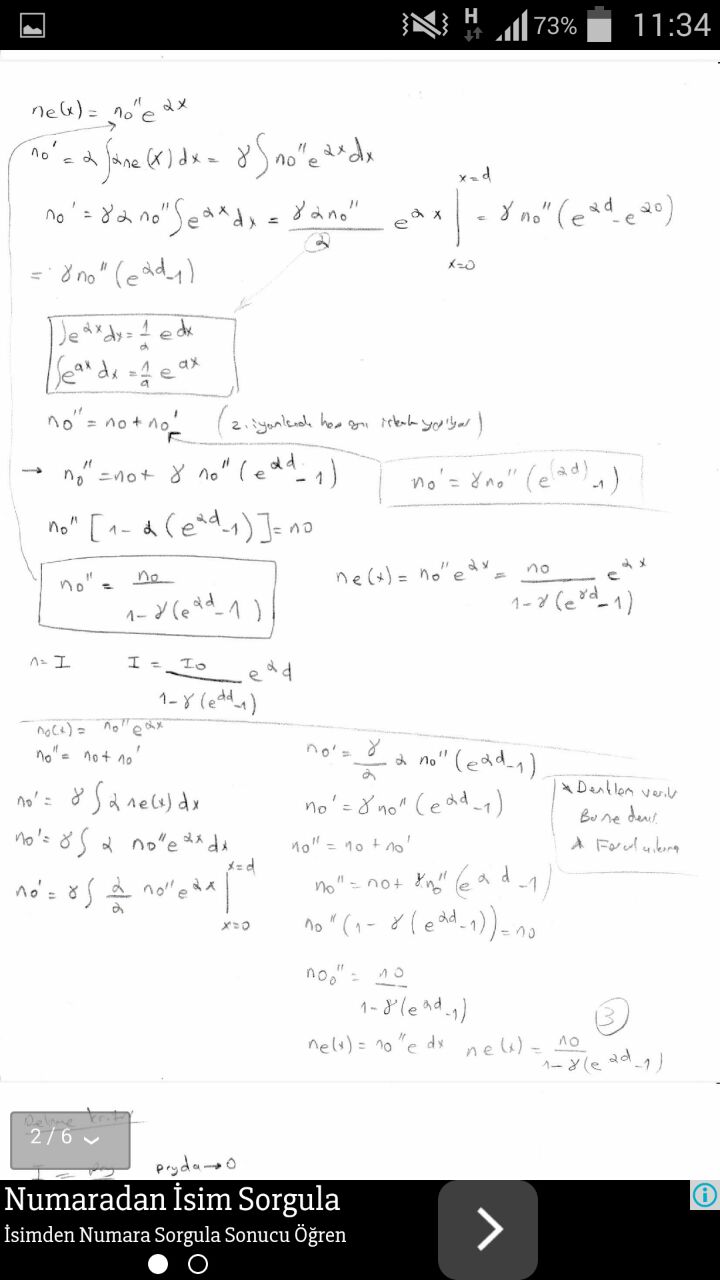 H 73% 11:34
ne(x) = no''e^αx
no' = α ∫αne(x)dx = γ ∫ no''e^αx dx
no' = γα no'' ∫e^αx dx = γαno''/α e^αx | x=d x=0 = γ no''(e^αd - e^α0)
= γno''(e^αd - 1)
∫e^αx dx = 1/α e^dx
∫e^ax dx = 1/a e^ax
no'' = no + no' (2. iyonlarda
→ no'' = no + γ no''(e^αd - 1)
no' = γno''(e^(αd) - 1)
no''[1 - α(e^αd - 1)] = no
no'' = no/1-γ(e^αd - 1)
ne(x) = no''e^αx = no/1-γ(e^γd - 1) e^αx
n = I I = Io/1-γ(e^αd - 1) e^αd
no(x) = no''e^αx
no'' = no + no'
no' = γ ∫ αne(x)dx
no' = γ ∫ α no''e^αx dx
no' = γ ∫ α/α no''e^αx | x=d x=0
no' = γ/α α no''(e^αd - 1)
no' = γno''(e^αd - 1)
no'' = no + no'
no'' = no + γno''(e^αd - 1)
no''(1 - γ(e^αd - 1)) = no
noo'' = no/1-γ(e^αd - 1)
ne(x) = no''e dx ne(x) = no/1-γ(e^αd - 1)
* Denklem verir
Bu ne denir
*
3
2/6
I =
→ 0
Numaradan İsim Sorgula
İsimden Numara Sorgula Sonucu Öğren